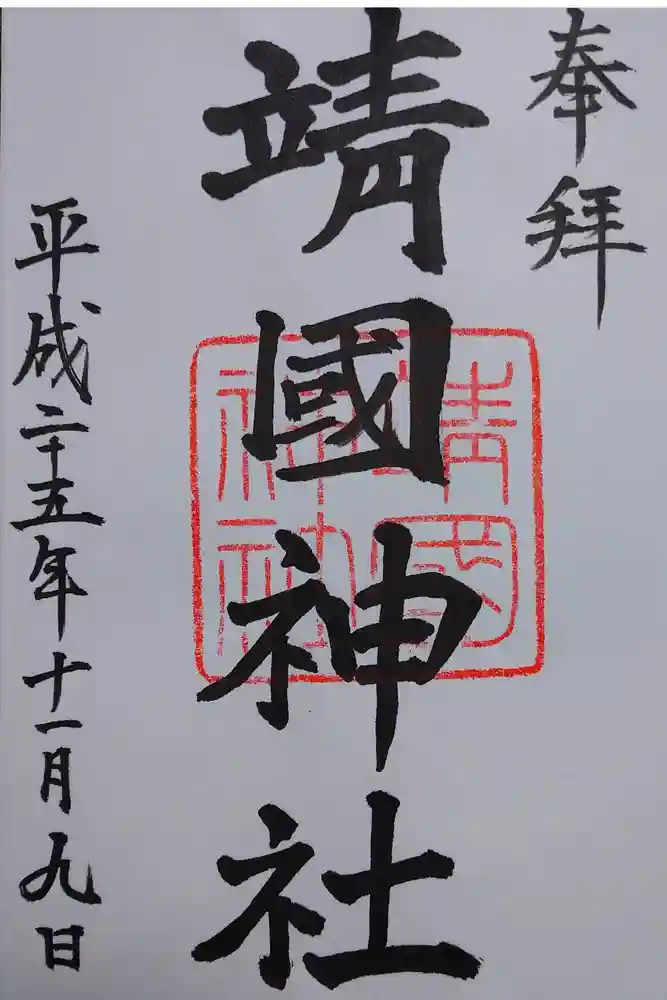 奉拝
靖國神社
靖国
神社
平成二十五年十一月九日